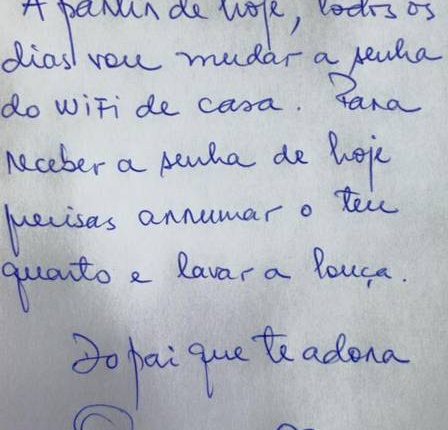 A partir de hoje, todos os
dias vou mudar a senha
do WiFi de casa. Para
receber a senha de hoje
precisas arrumar o teu
quarto e lavar a louça.
Do pai que te adora